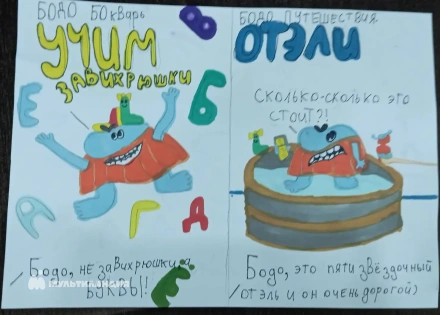 БОДО БОКварь
УЧИМ
ЗАВИХРЮШКИ
В
Е
Б
А
Г
Д
/ Бодо, не заВихрюшки, а
БУКВЫ!
Ё
МУЛЬТИЛАНДИЯ
БОДО ПУТЕШЕСТВИЯ
ОТЭЛИ
СКОЛЬКО-СКОЛЬКО ЭТО
СТОИТ?!
Бодо, это пяти звёздочный
/отэль и он очень дорогой)